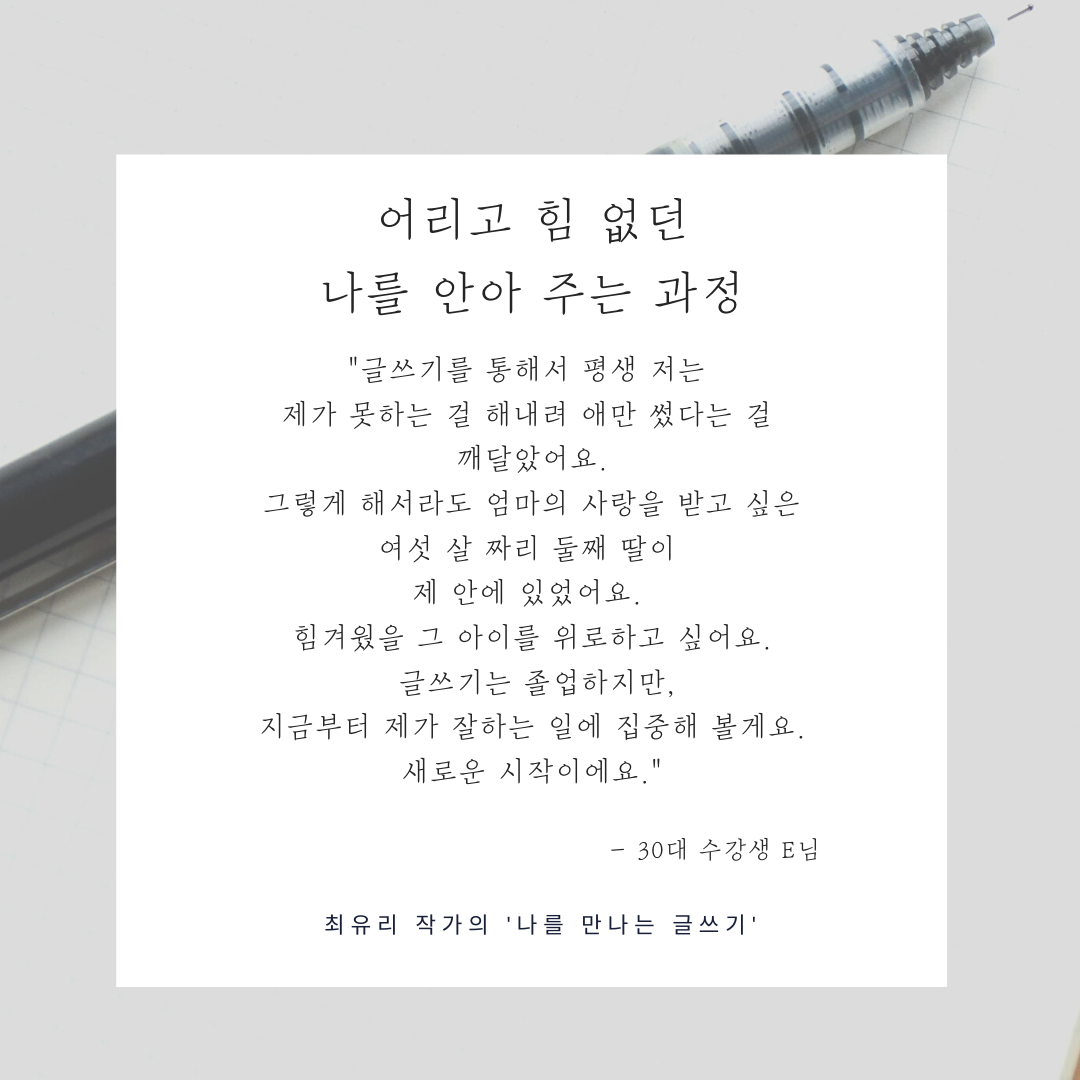 어리고 힘 없던
나를 안아 주는 과정
"글쓰기를 통해서 평생 저는
제가 못하는 걸 해내려 애만 썼다는 걸
깨달았어요.
그렇게 해서라도 엄마의 사랑을 받고 싶은
여섯 살 짜리 둘째 딸이
제 안에 있었어요.
힘겨웠을 그 아이를 위로하고 싶어요.
글쓰기는 졸업하지만,
지금부터 제가 잘하는 일에 집중해 볼게요.
새로운 시작이에요."
– 30대 수강생 E님
최유리 작가의 '나를 만나는 글쓰기'